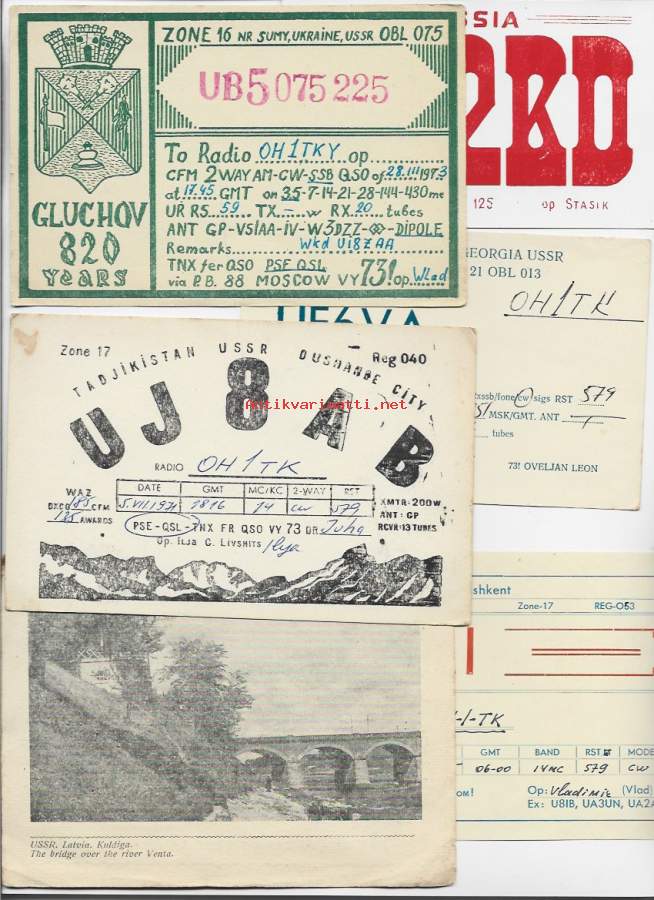 ZONE 16 NR SUMY, UKRAINE, USSR OBL 075
UB5075225
To Radio OH1TKY op
CFM 2WAY AM-CW-SSB QSO of 28.III 1973
at 17.45 GMT on 3,5-7-14-21-28-144-430 mc
UR RS 59 TX - w RX 20 tubes
ANT GP-VS1AA-IV-W3DZZ-DIPOLE
Remarks Wkd UI8ZAA
TNX fer QSO PSE QSL 73! op. Wlad
via P.B. 88 MOSCOW VY
GLUCHOV
820
YEARS
SSIA
2RD
125 op STASIK
GEORGIA USSR
21 OBL 013
OH1TK
xssb/fone/cw sigs RST 579
MSK/GMT. ANT
tubes
73! OVELJAN LEON
Zone 17
TADJIKISTAN USSR DUSHANBE CITY
Reg 040
UJ8AB
Antikvariaatti.net
RADIO OH1TK
WAZ
185 CFM
125 AWARDS
DATE GMT MC/KC 2-WAY RST
5.VII.1971 1816 14 CW 579
XMTR: 200W
ANT: GP
RCVR: 13 TUBES
PSE-QSL-TNX FR QSO VY 73 DR Juha
Op. ILJA G. LIVSHITS Ilya
shkent
Zone-17 REG-O53
-1-TK
GMT BAND RST MODE
06-00 14MC 579 CW
OM!
Op: Vladimir (Vlad)
Ex: U8IB, UA3UN, UA2A
USSR. Latvia. Kuldiga.
The bridge over the river Venta.